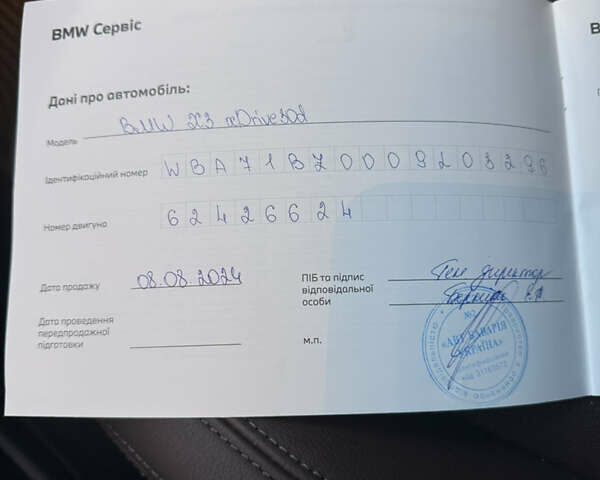 BMW Сервіс
В
Дані про автомобіль:
Модель BMW X3 xDrive30d
Ідентифікаційний номер WBA71BZ0009L03296
Номер двигуно 62426624
Дата продажу 08.08.2024
ПІБ та підпис відповідальної особи Ген директор
Дата проведення
передпродажної
підготовки
м.п.
№2
«АВТ БАВАРІЯ
УКРАЇНА»